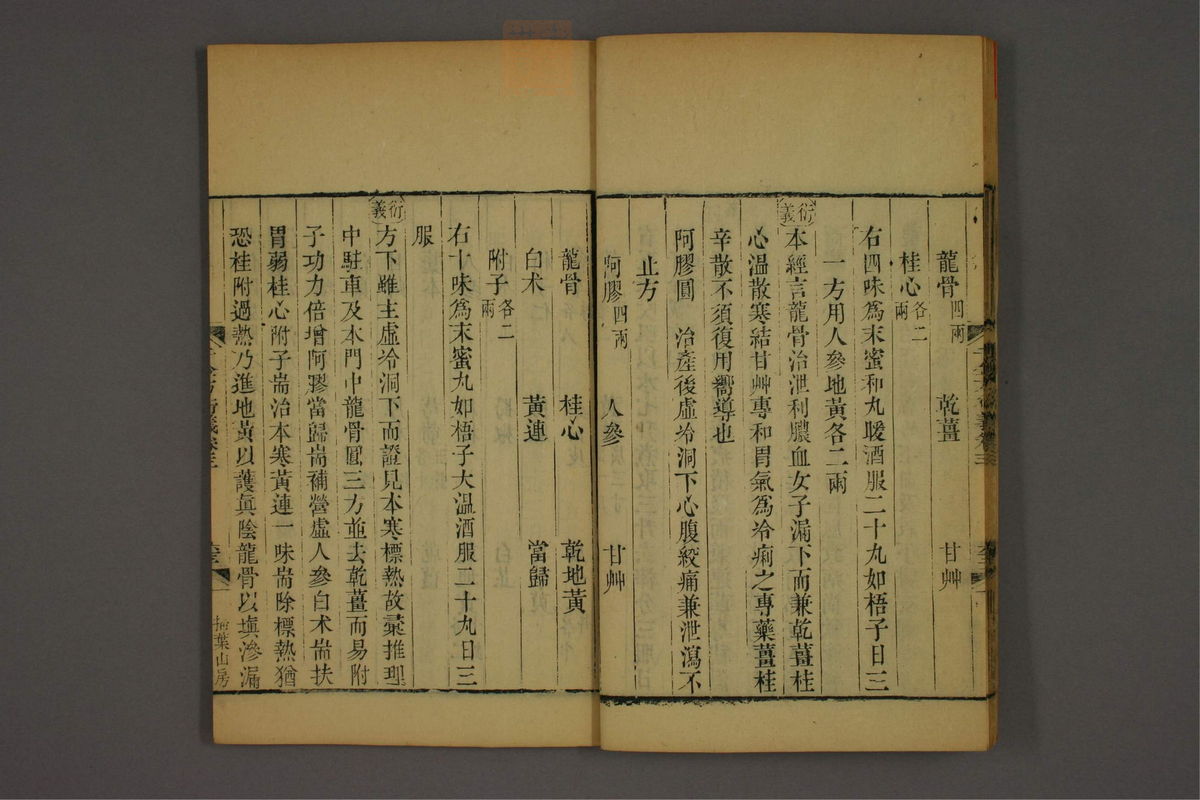 龍骨四兩 乾薑 甘艸
桂心各二兩
右四味爲末蜜和丸暖酒服二十丸如梧子日三
一方用人參地黃各二兩
衍義
本經言龍骨治泄利膿血女子漏下而兼乾薑桂
心溫散寒結甘艸專和胃氣爲冷痢之專藥薑桂
辛散不須復用嚮導也
阿膠圓 治產後虛冷洞下心腹絞痛兼泄瀉不
止方
阿膠四兩 人參 甘艸
龍骨 桂心 乾地黃
白术 黃連 當歸
附子各二兩
右十味爲末蜜丸如梧子大溫酒服二十丸日三
服
衍義
方下雖主虛冷洞下而證見本寒標熱故彚推理
中駐車及本門中龍骨圓三方並去乾薑而易附
子功力倍增阿膠當歸耑補營虛人參白术耑扶
胃弱桂心附子耑治本寒黃連一味耑除標熱猶
恐桂附過熱乃進地黃以護眞陰龍骨以塡滲漏
千金方衍義卷三
掃葉山房